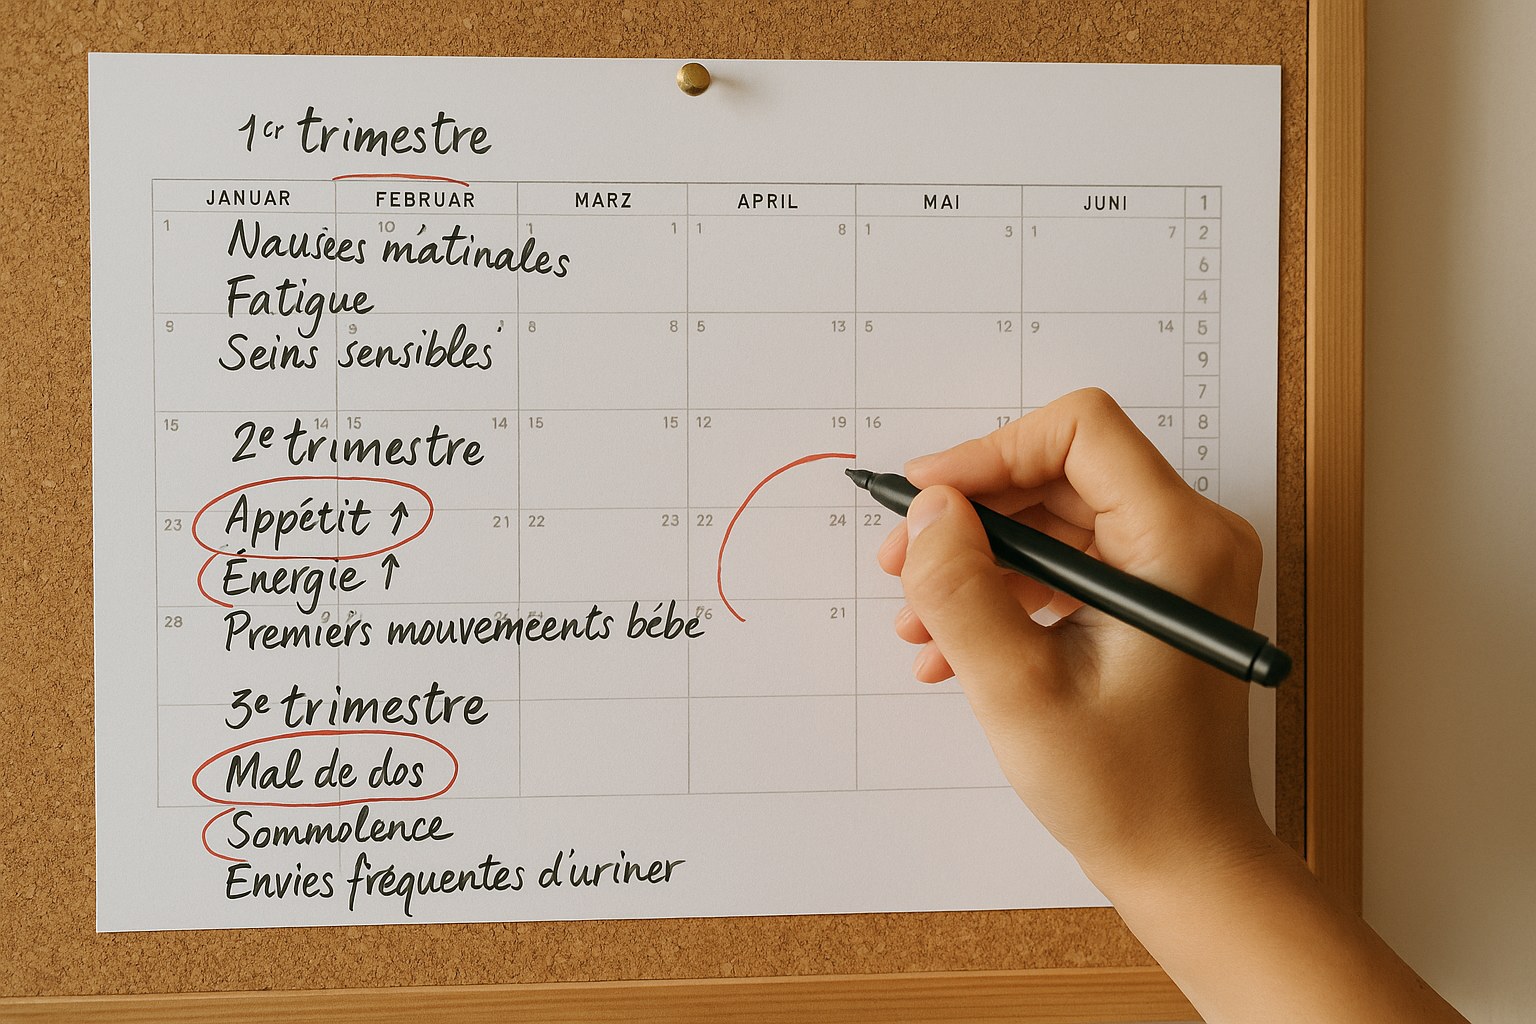 1er trimestre
JANUAR FEBRUAR MARZ APRIL MAI JUNI 1
1 10 1 1 1 8 1 3 1 7 2
Nauseés mátinales
6
Fatigue
4
9 9 8 8 5 13 5 12 9 14 5
Seins sensibles
9
7
15 14 15 14 15 15 12 19 16 17 21 8
2e trimestre
9
0
Appétit ↑
23 21 22 23 22 24 22
Énergie ↑
28 26 21
Premiers mouvemeents bébe
3e trimestre
Mal de dos
Sommolence
Envies fréquentes d'uriner